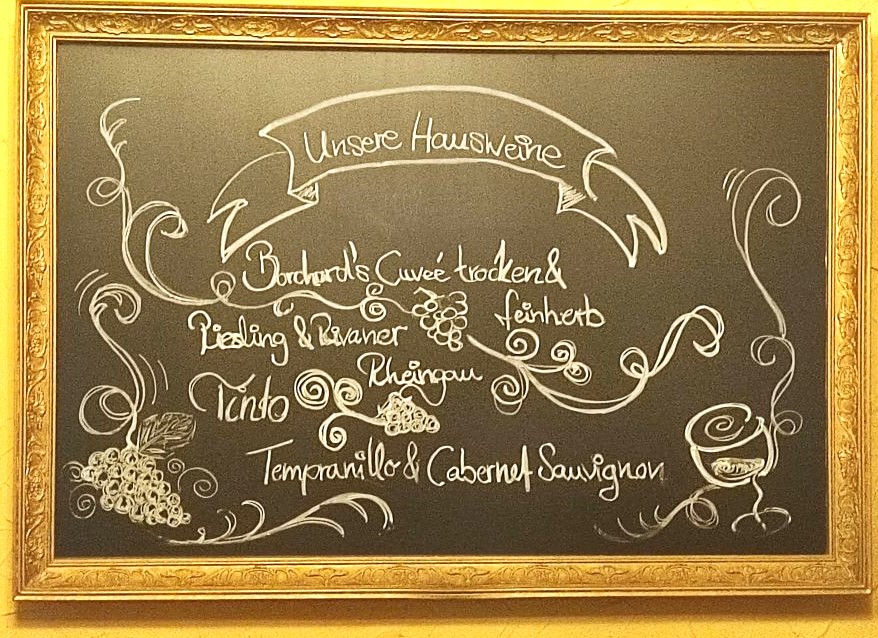 Unsere Hausweine
Borchard's Cuveé trocken &
feinherb
Riesling & Rivaner
Rheingau
Tinto
Tempranillo & Cabernet Sauvignon